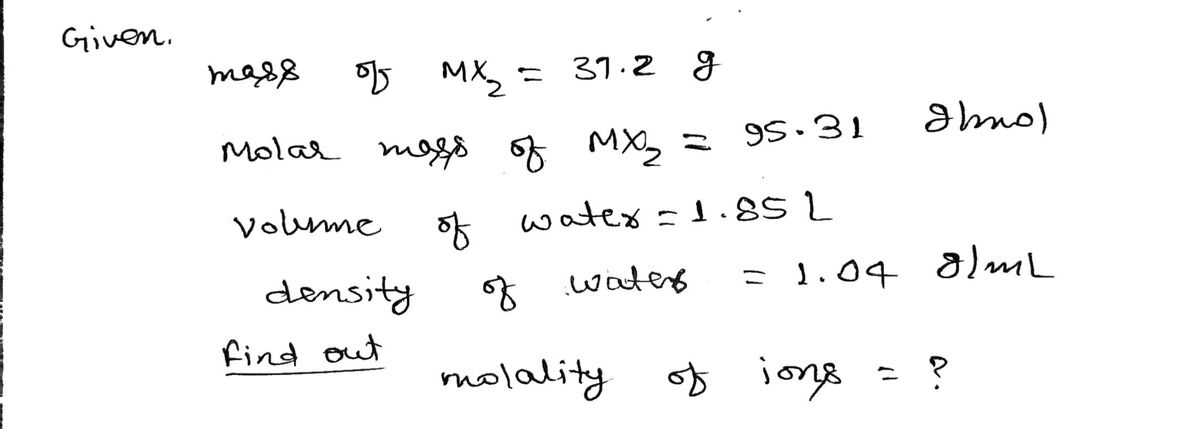 Given.
mass of MX₂ = 37.2 g
Molar mass of MX₂ = 95.31 g/mol
Volume of water = 1.85 L
density of water = 1.04 g/mL
find out
molality of ions = ?